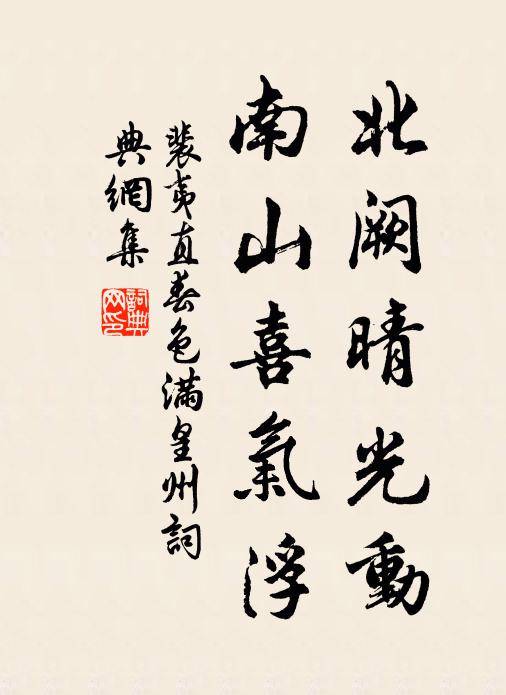 北闕晴光動
南山喜氣浮
裴夷直春色滿皇州詞
典網集
詞典
网印